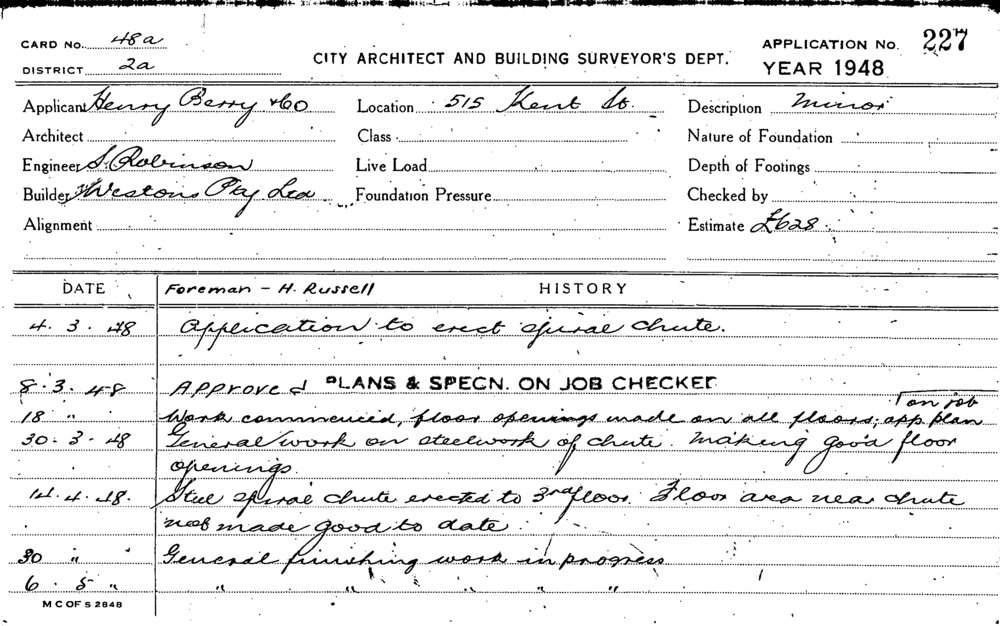 CARD No. 48a
DISTRICT 2a
CITY ARCHITECT AND BUILDING SURVEYOR'S DEPT.
APPLICATION No. 227
YEAR 1948
Applicant Henry Berry & Co Location 515 Kent St. Description Minor
Architect Class Nature of Foundation
Engineer S. Robinson Live Load Depth of Footings
Builder Westons Pty Ltd Foundation Pressure Checked by
Alignment Estimate £628
DATE Foreman - H. Russell HISTORY
4. 3. 48 Application to erect spiral chute.
8. 3. 48 Approved PLANS & SPECN. ON JOB CHECKED
on job
18 " Work commenced, floor openings made on all floors; app plan
30. 3. 48 General work on steelwork of chute. Making good floor
openings.
14. 4. 48. Steel spiral chute erected to 3rd floor. Floor area near chute
not made good to date.
30 " General finishing work in progress
6. 5 " " " " " "
M C OF S 2848